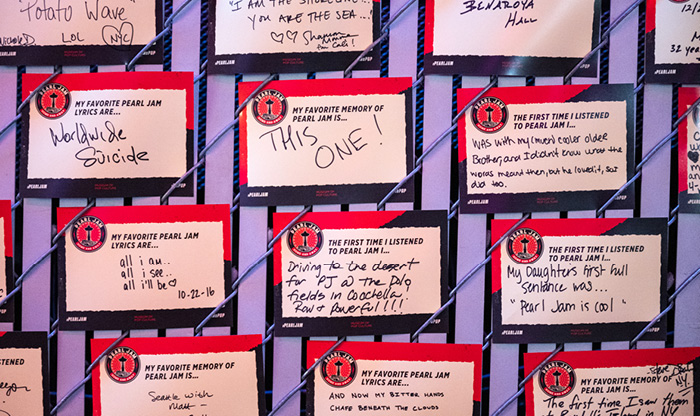 Potato Wave
LOL
NYC
"I AM THE SHORELINE,
YOU ARE THE SEA..."
Shannon
from Cali!
BENAROYA
HALL
12/2
32 year
#PEARLJAM
#MOPOP
MY FAVORITE PEARL JAM
LYRICS ARE...
Worldwide
Suicide
#PEARLJAM
MY FAVORITE MEMORY OF
PEARL JAM IS...
THIS
ONE!
#PEARLJAM
THE FIRST TIME I LISTENED
TO PEARL JAM I...
WAS with my (much) cooler older
Brother, and I didn't know what the
words meant then, but he loved it, so I
did too.
#PEARLJAM
MY FAVORITE PEARL JAM
LYRICS ARE...
all i am..
all i see..
all i'll be
10-22-16
#PEARLJAM
THE FIRST TIME I LISTENED
TO PEARL JAM I...
Driving to the desert
for PJ @ the Polo
fields in Coachella.
Raw & Powerful!!!!
#PEARLJAM
THE FIRST TIME I LISTENED
TO PEARL JAM I...
My Daughters First Full
Sentance was...
"Pearl Jam is cool"
#PEARLJAM
#MOPOP
STENED
MY FAVORITE MEMORY OF
PEARL JAM IS...
Seattle with
Matt -
MY FAVORITE PEARL JAM
LYRICS ARE...
AND NOW MY BITTER HANDS
CHAFE BENEATH THE CLOUDS
MY FAVORITE MEMORY OF
PEARL JAM IS...
NY
The first time I saw them